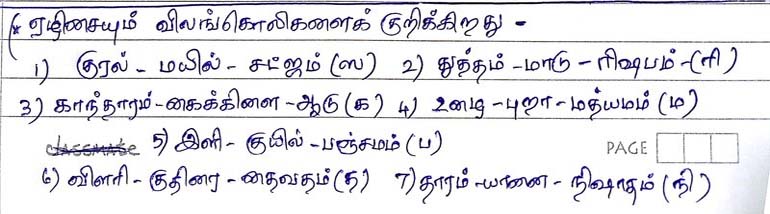 * ஏழிசையும் விலங்கொலிகளைக் குறிக்கிறது -
1) குரல் - மயில் - சட்ஜம் (ஸ) 2) துத்தம் - மாடு - ரிஷபம் - (ரி)
3) காந்தாரம் - கைக்கிளை - ஆடு (க) 4) உழை - புறா - மத்யமம் (ம)
classmate 5) இளி - குயில் - பஞ்சமம் (ப) PAGE
6) விளரி - குதிரை - தைவதம் (த) 7) தாரம் - யானை - நிஷாதம் (நி)